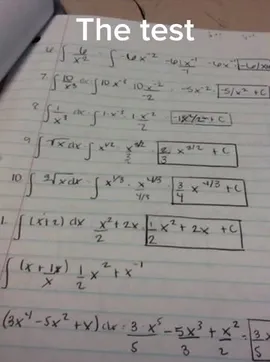 The test
6. ∫ 6/x² ∫ -6x⁻² -6x⁻¹/1 -6x⁻¹
7. ∫ 10/x³ dx ∫ 10x⁻³ 10x⁻²/-2 -5x⁻² -5/x² + C
8. ∫ 1/x³ dx ∫ 1·x⁻³ 1·x⁻²/2
9. ∫ √x dx ∫ x^1/2 x^3/2 / 3/2 2/3 x^3/2 + C
10. ∫ ³√x dx ∫ x^1/3 x^4/3 / 4/3 3/4 x^4/3 + C
∫ (x+2) dx x²/2 + 2x 1/2 x² + 2x + C
1/2 x² + x⁻¹
(3x⁴ - 5x² + x) dx = 3·x⁵/5 - 5x³/3 + x²/2 =